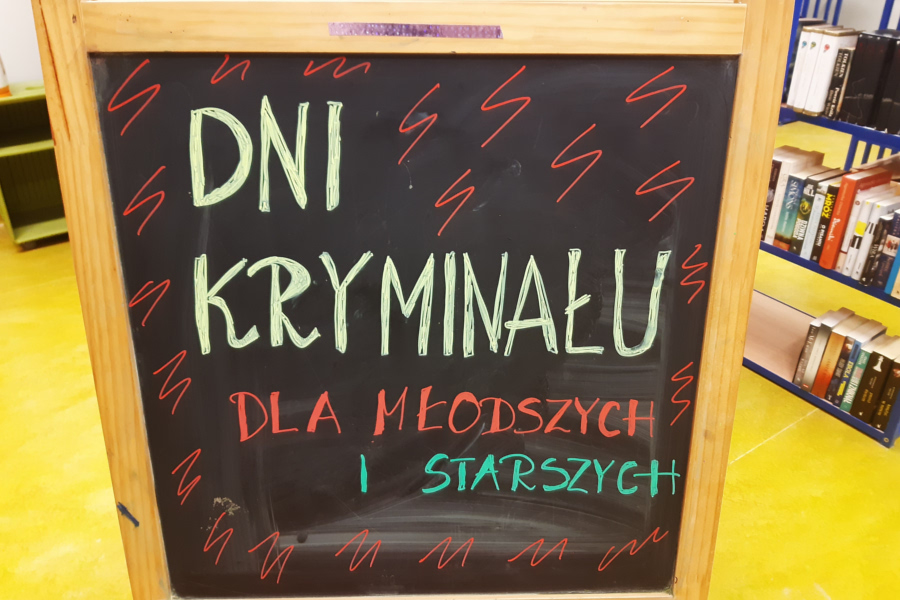 DNI
KRYMINAŁU
DLA MŁODSZYCH
I STARSZYCH